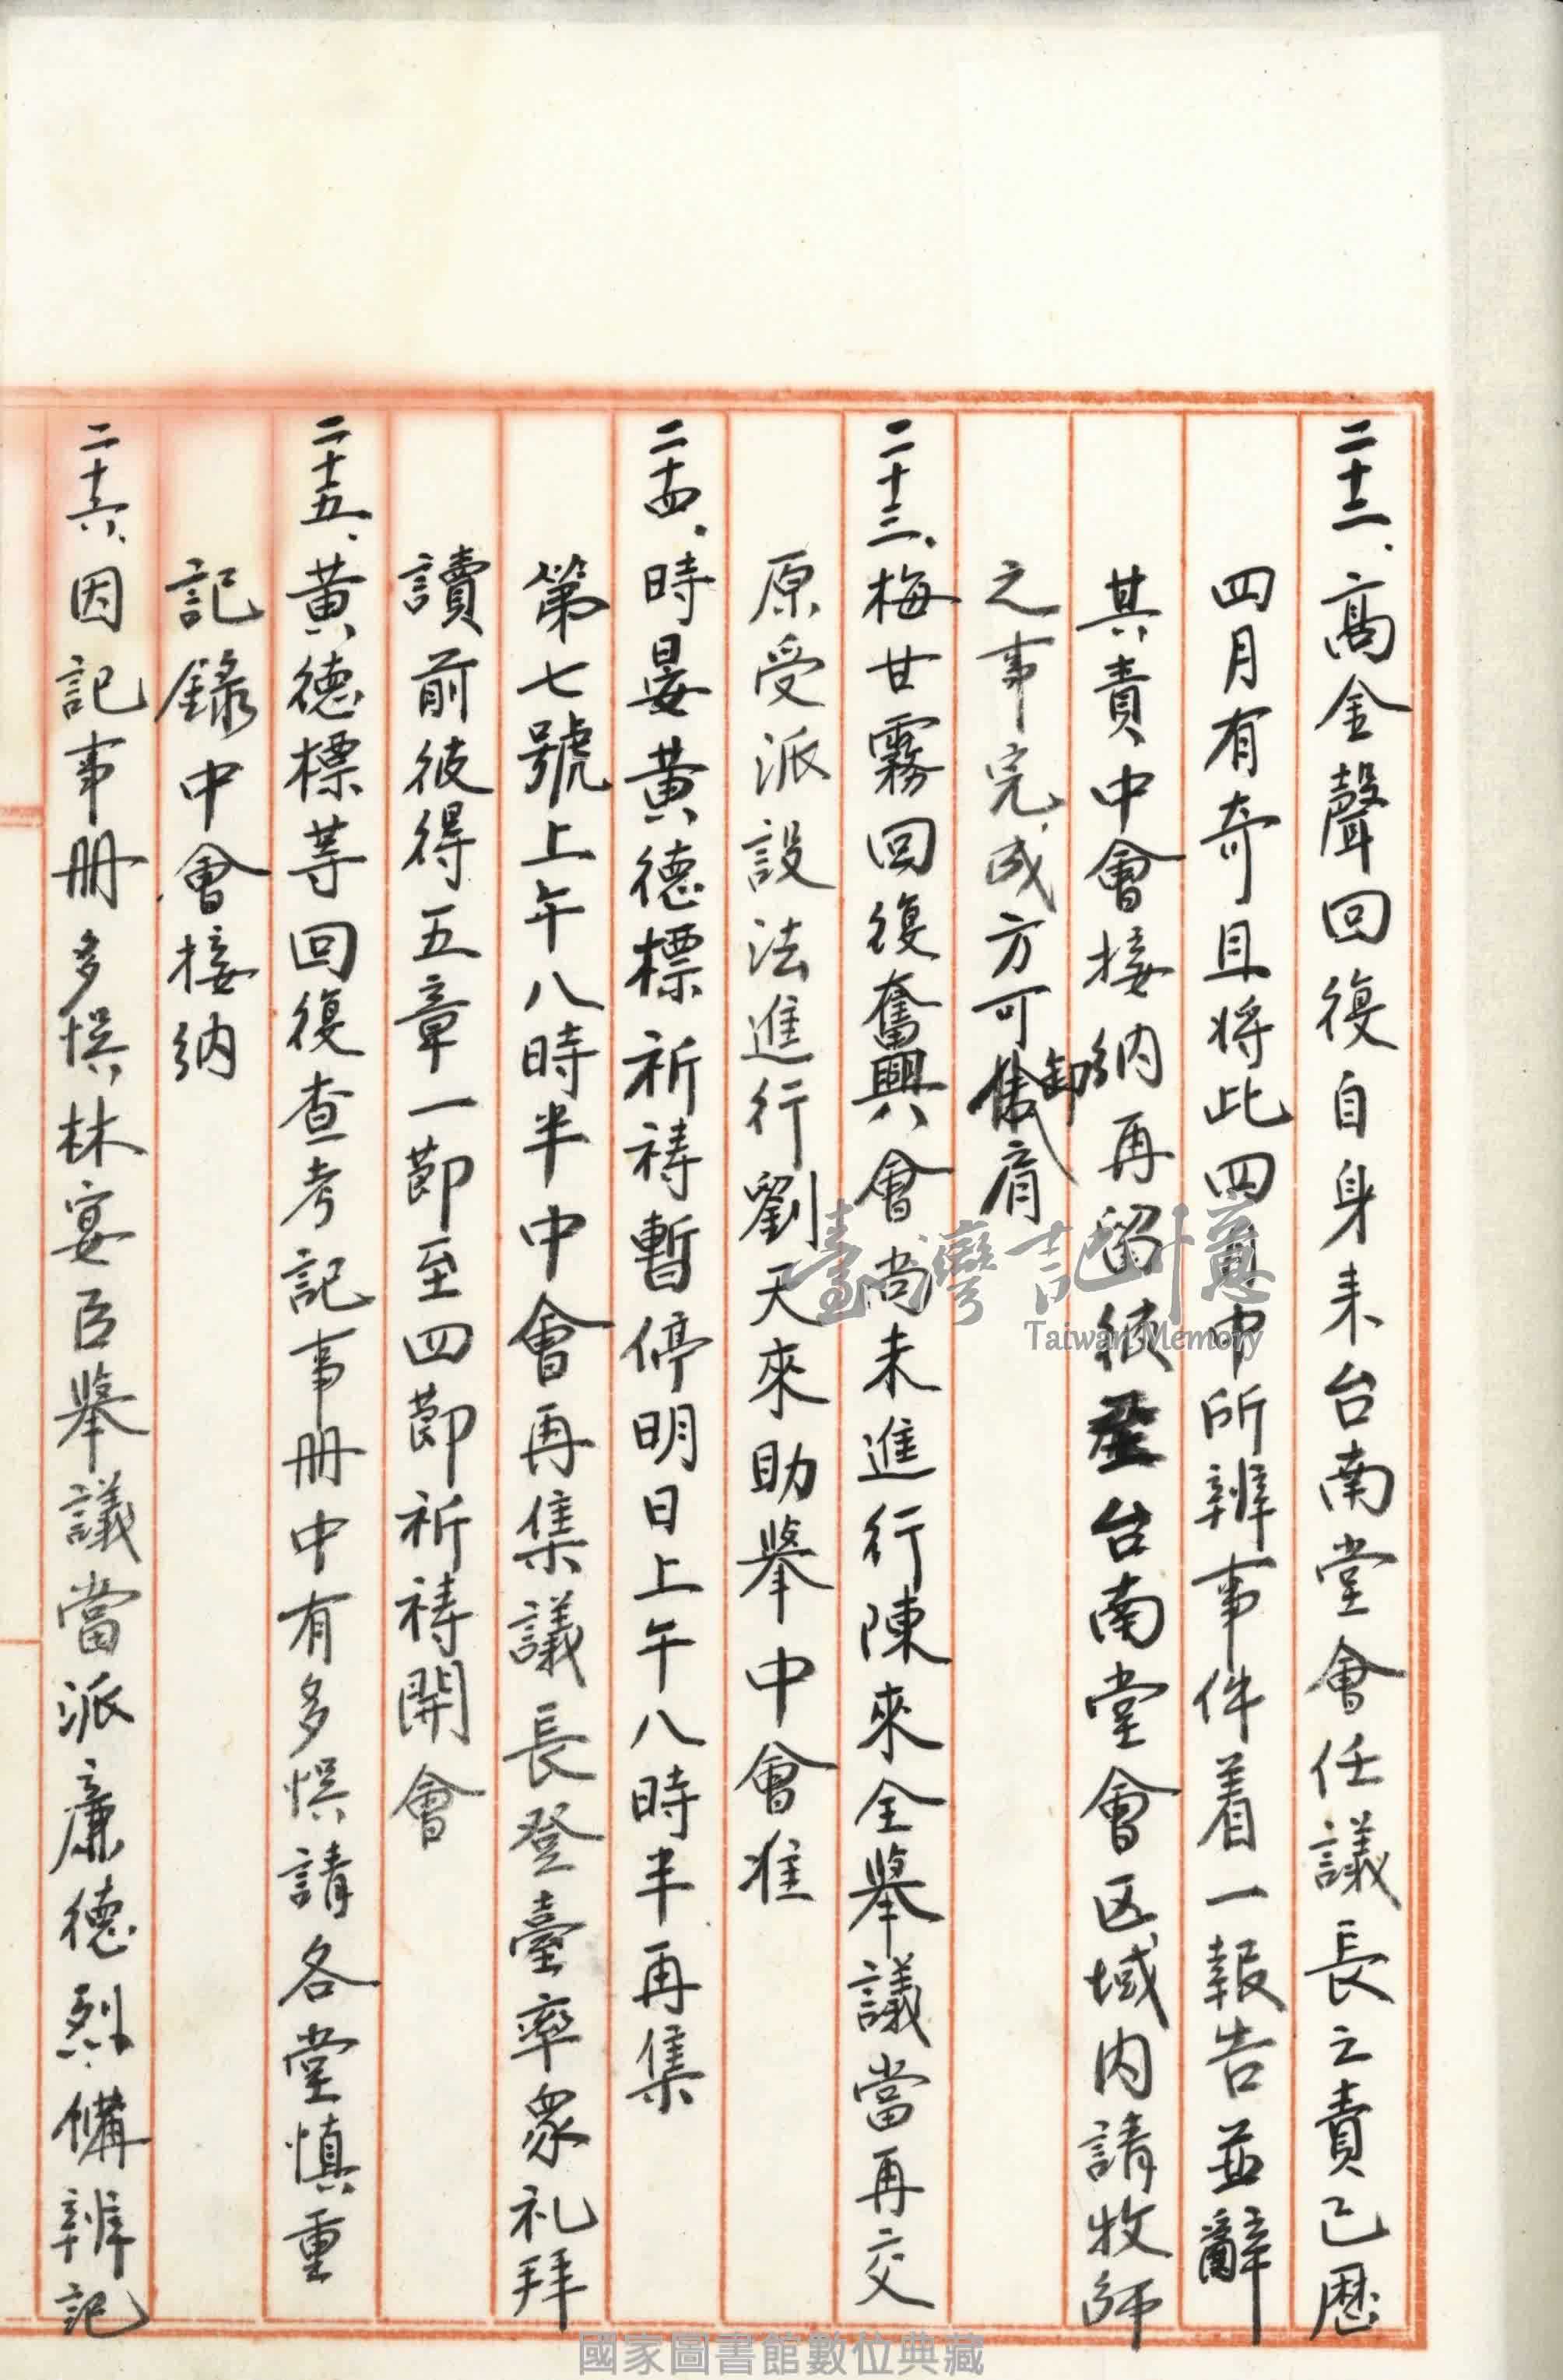 二十二、高金聲回復自身耒台南堂會任議長之責已歷
四月有奇且将此四月中所辦事件着一報告並辭
其責中會接納再留彼至台南堂會区域内請牧师
之事完成方可卸肩
二十三、梅甘霧回復奮興會尚未進行陳來全舉議當再交
原受派設法進行劉天來助舉中會准
二十四、時晏黃德標祈禱暫停明日上午八時半再集
第七號上午八時半中會再集議長登臺率衆礼拜
讀前彼得五章一節至四節祈禱開會
二十五、黃德標等回復查考記事册中有多悞請各堂慎重
記錄中會接納
二十六、因記事册多悞林宴臣舉議當派廉德烈備辦記
臺灣記憶
Taiwan Memory
國家圖書館數位典藏